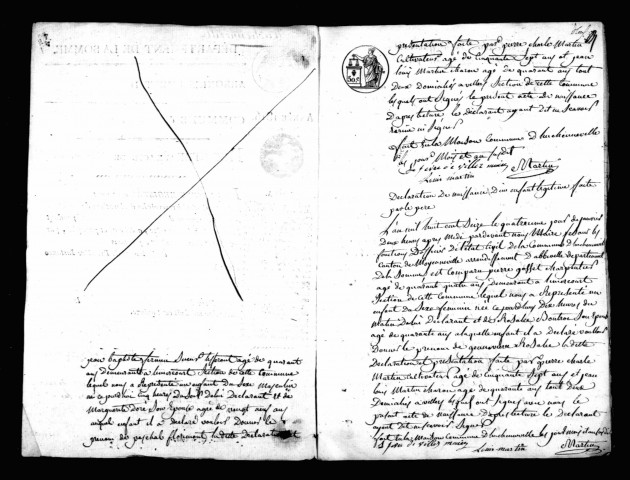 jean baptiste firmin agé de quarante
ans demeurant a limercourt Section de cette Commune
lequel nous a représenté un enfant du Sexe Masculin
né ce jourdhui cinq heures du Soir de lui Déclarant et de
Marguerite doré Son Epouse agée de vingt ans
auquel enfant il a déclaré vouloir Donner le
prenom de paschal florimont ladite Declaration et
presentation faite par pierre charle Martin
Cultivateur agé de Cinquante Sept ans et jean
louis Martin charon agé de quarante ans tout
Deux Domiciliés a villers Section de cette Commune
lesquels ont Signé le présent acte de naissance
Dapres lecture le Declarant ayant dit ne Scavoir
ni Signer
fait En la Maison Commune D huchenneville
les jour Mois et an Susdit
de villers maire Martin
Louis martin
Declaration de naissance D'un enfant légitime faite
par le pere
L'an mil huit cent Seize le quatorzieme jour de janvier
Deux heures apres Midi pardevant nous Maire fesant les
fonctions D'officier de l'état Civil de la Commune D huchenneville
Canton de Moyenneville arrondissement d'abbeville departement
de la Somme est comparu pierre gosset charpentier
agé de quarante quatre ans demeurant a limercourt
Section de cette Commune lequel nous a Représenté un
enfant du Sexe feminin née ce jourdhui Dix heures du
Matin De lui Declarant et de Rosalie Boutron Son epouse
agée de quarante ans auquel enfant il a Déclaré vouloir
Donner le prenom de genevieve Rosalie ladite
Declaration et présentation faite par pierre charle
Martin Cultivateur agé de Cinquante Sept ans et jean
louis Martin charon agé de quarante ans tout deux
Domiciliés a villers lesquels ont Signé avec nous le
present acte de naissance D'apres lecture le Declarant
ayant dit ne Scavoir Signer
fait En la Maison Commune D huchenneville les jour Mois et an Susdit
de villers maire Martin
Louis martin